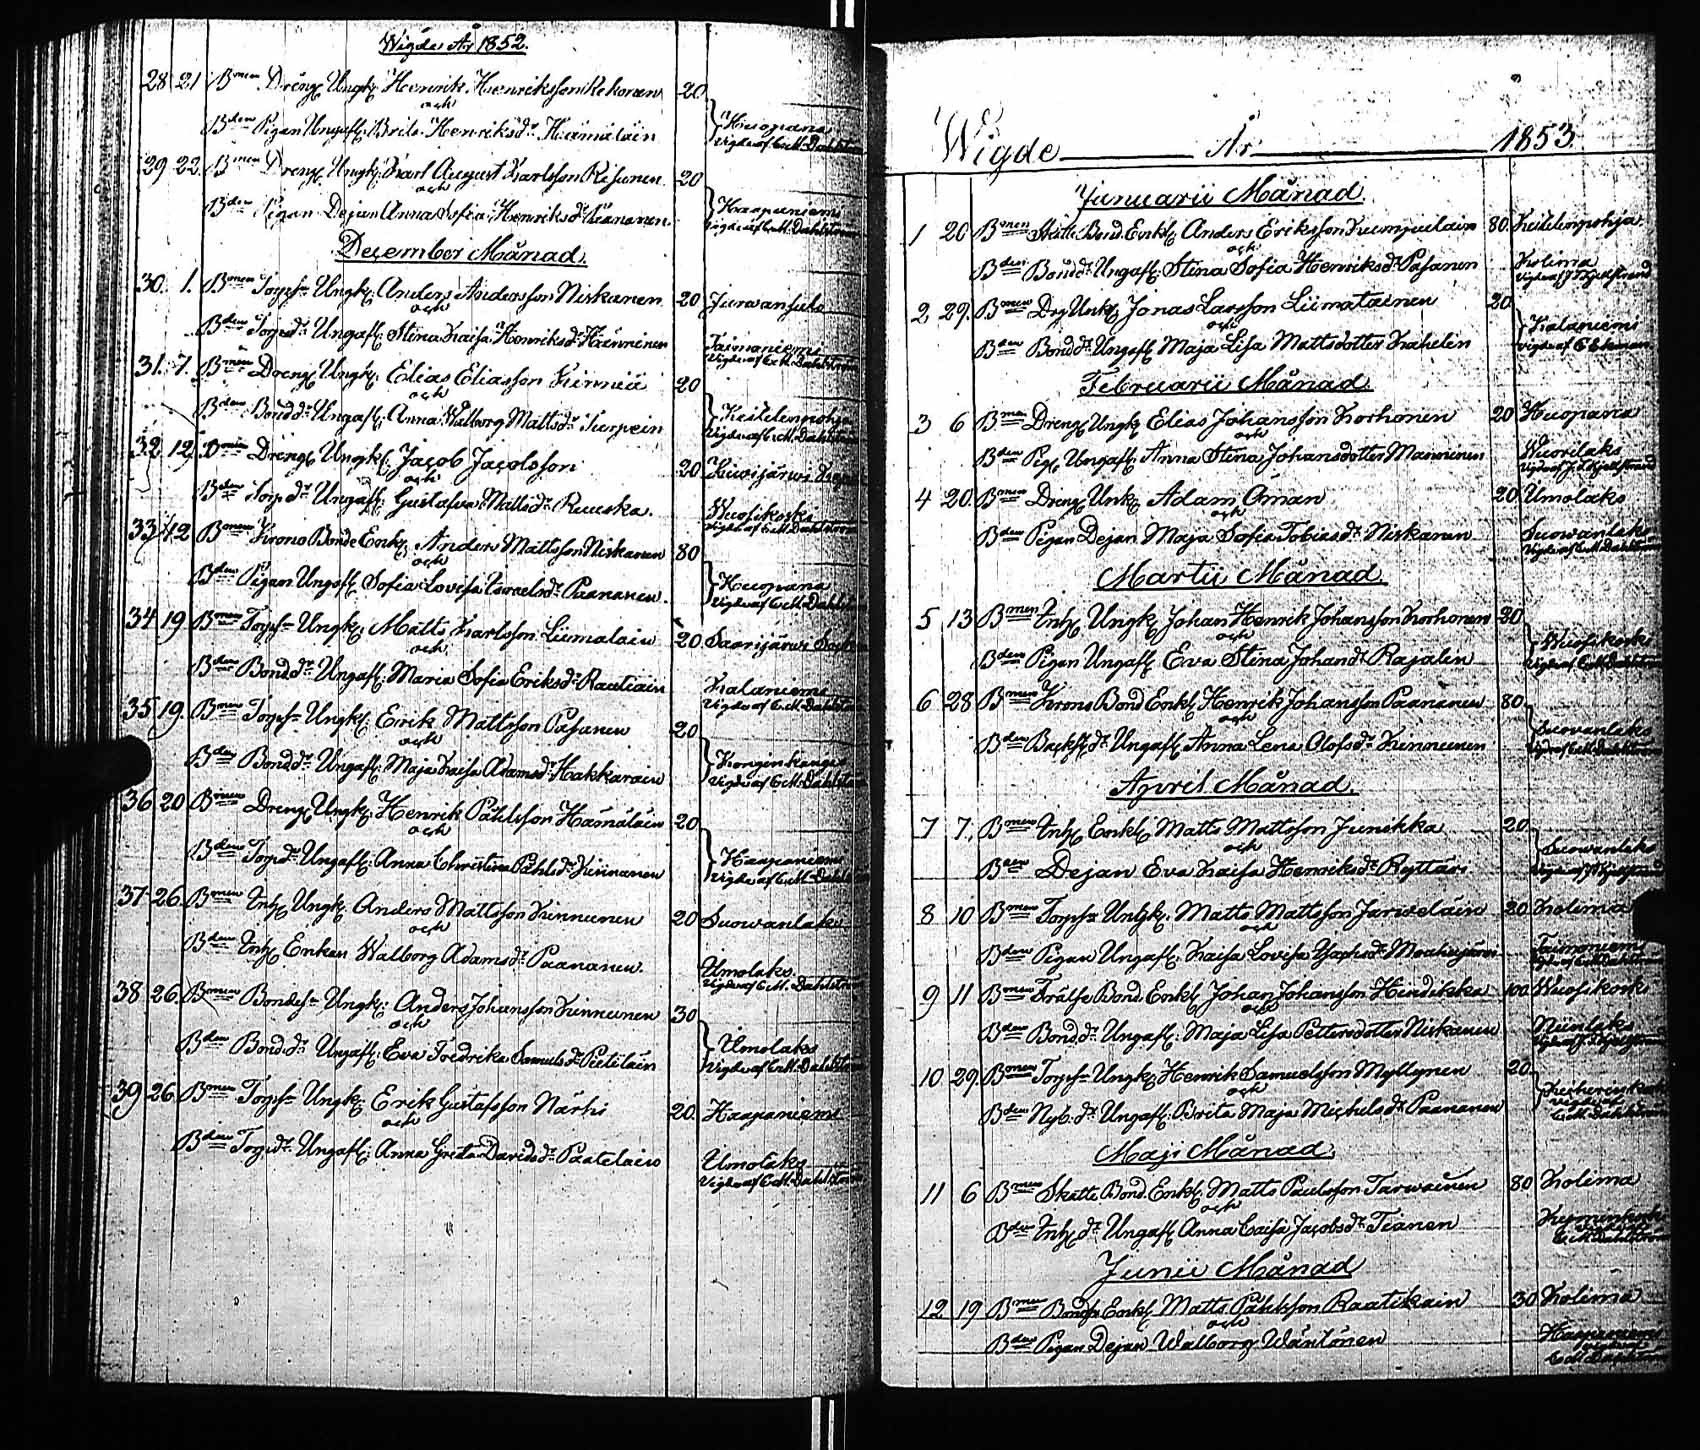 Wigde År 1852.
28 21 Bmen Dreng Ungk: Henrik Henriksson Kekonen 20
och
Bden Pigan Ungafl: Brita Henriksdr Hämäläin Huopana
Vigde af C.M. Dahlström
29 22. Bmen Dreng Ungk: Karl August Karlsson Risunen 20
och
Bden Pigan Dejan Anna Sofia Henriksdr Paananen Haapaniemi
Vigde af C.M. Dahlström
December Månad.
30. 1. Bmen Torpsn Ungk: Anders Andersson Niskanen 20
och
Bden Torpdr Ungafl: Stina Kaisa Henriksdr Hänninen Taimoniemi
Vigde af C.M. Dahlström
31. 7. Bmen Dreng Ungk: Elias Eliasson Kinnuä 20
och
Bden Bonddr Ungafl: Anna Walborg Mattsdr Turpein Keitelenpohja
Vigde af C.M. Dahlström
32 12 Bmen Dreng Ungk: Jacob Jacobsson 20 Kivijärvi
och
Bden Torpdr Ungafl: Gustafva Mattsdr Ruuska. Wuosikoski
Vigde af C.M. Dahlström
33 12 Bmen Krono Bonde Enkl: Anders Mattsson Niskanen 80
och
Bden Pigan Ungafl: Sofia Lovisa Israelsdr Paananen. Huopana
Vigde af C.M. Dahlström
34 19. Bmen Torpsn Ungk: Matts Karlsson Liimatain 20 Saarijärvi
och
Bden Bonddr Ungafl: Maria Sofia Eriksdr Rautiain Kalaniemi
Vigde af C.M. Dahlström
35 19. Bmen Torpsn Ungk: Erik Mattsson Pasanen 20
och
Bden Bonddr Ungafl: Maja Kaisa Adamsdr Hakkarain Konginkangas
Vigde af C.M. Dahlström
36 20 Bmen Dreng Ungk: Henrik Påhlsson Hämäläin 20
och
Bden Torpdr Ungafl: Anna Christina Påhlsdr Kinnunen Haapaniemi
Vigde af C.M. Dahlström
37 26. Bmen Inh: Ungk: Anders Mattsson Kinnunen 20 Suovanlaks
och
Bden Inh: Enkan Walborg Adamsdr Paananen. Umolaks
Vigde af C.M. Dahlström
38 26. Bmen Bondesn Ungk: Anders Johansson Kinnunen 30
och
Bden Bonddr Ungafl: Eva Fredrika Samuelsdr Pietiläin Umolaks
Vigde af C.M. Dahlström
39 26. Bmen Torpsn Ungk: Erik Gustafsson Närhi 20. Haapaniemi
och
Bden Torpdr Ungafl: Anna Greta Davidsdr Paatelain Umolaks
Vigde af C.M. Dahlström
Wigde År 1853
Januarii Månad.
1 20 Bmen Skatte Bond. Enkl: Anders Eriksson Kumpulain 80. Keitelenpohja.
och
Bden Bonddr Ungafl: Stina Sofia Henriksdr Pasanen Kolima
Vigde af J. Kjellstrand
2 29. Bmen Dg Unk: Jonas Larsson Liimatainen 20
och
Bden Bonddr Ungafl: Maja Lisa Mattsdotter Kahelin Kalaniemi
Vigde af C. Ekman
Februarii Månad.
3 6 Bmen Dreng Ungk: Elias Johansson Korhonen 20 Huopana
och
Bden Pig: Ungafl: Anna Stina Johansdotter Manninen Wuorilaks
Vigde af J. Kjellstrand
4 20. Bmen Dreng Unk: Adam Öman 20 Umolaks
och
Bden Pigan Dejan Maja Sofia Tobiasdr Niskanen Suovanlaks
Vigde af C.M. Dahlström
Martii Månad.
5 13 Bmen Inh: Ungk: Johan Henrik Johansson Korhonen 20
och
Bden Pigan Ungafl: Eva Stina Johansdr Rajalin Wuosikoski
Vigde af C.M. Dahlström
6 28 Bmen Krono Bond Enkl: Henrik Johansson Paananen 80
och
Bden Backstdr Ungafl: Anna Lena Olofsdr Kinnunen Suovanlaks
Vigde af C.M. Dahlström
April Månad.
7 7. Bmen Inh: Enkl: Matts Mattsson Junikka 20
och
Bden Dejan Eva Kaisa Henriksdr Ryttäri Suovanlaks
Vigde af J. Kjellstrand
8 10 Bmen Torpsn Ungk: Matts Mattsson Jarveläin 20 Kolima
och
Bden Pigan Ungafl: Kaisa Lovisa Taimoniemi
Vigde af C.M. Dahlström
9 11 Bmen Frälse Bond. Enkl: Johan Johansson Hindikka 100 Wuosikosk
och
Bden Bonddr Ungafl: Maja Lisa Pettersdotter Niskanen Niinilaks
Vigde af J. Kjellstrand
10 29. Bmen Torpsn Ungk: Henrik Samuelsson Myllynen 20
och
Bden Nyb.dr Ungafl: Brita Maja Michelsdr Paananen
Vigde af
C.M. Dahlström
Maji Månad.
11 6 Bmen Skatte Bond. Enkl: Matts Paulsson Tarvainen 80 Kolima
och
Bden Inh:dr Ungafl: Anna Caisa Jacobsdr Tianen
Vigde af
C.M. Dahlström
Junii Månad
12 19 Bmen Bondsn Enkl: Matts Påhlsson Raatikain 30 Kolima
och
Bden Pigan Dejan Walborg Wäntönen Haapaniemi
Vigde af
C.M. Dahlström